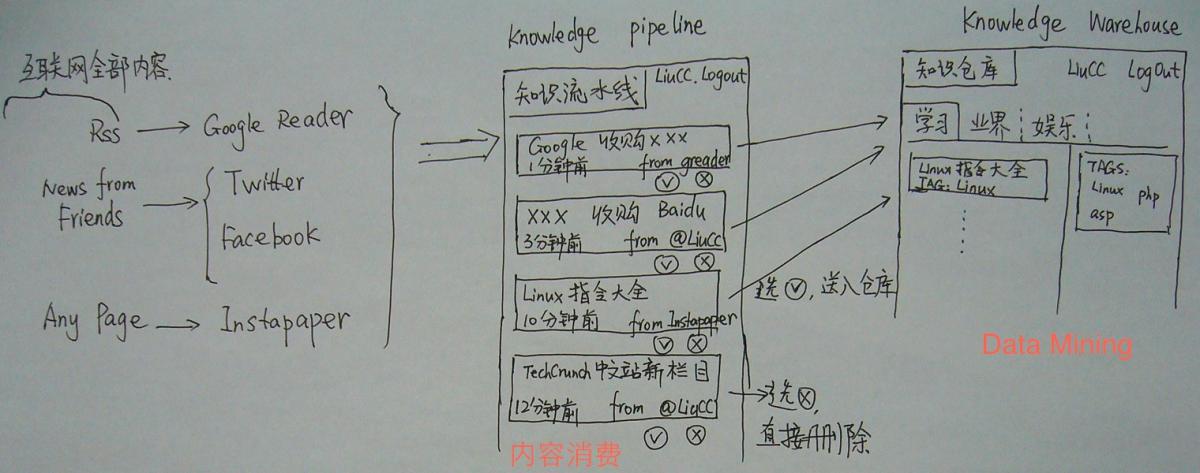 互联网全部内容
Rss Google Reader
News from
Friends
Twitter
Facebook
Any Page Instapaper
Knowledge pipeline
知识流水线 LiuCC. Logout
Google 收购 x x x
1分钟前 from greader
XXX 收购 Baidu
3分钟前 from @LiuCC
Linux 指令大全
10分钟前 from Instapaper
TechCrunch 中文站新栏目
12分钟前 from @LiuCC
内容消费
选 ✓, 送入仓库
选 ×,
直接删除
Knowledge Warehouse
知识仓库 LiuCC LogOut
学习 业界 娱乐
Linux 指令大全
TAG: Linux
TAGS:
Linux php
asp
Data Mining